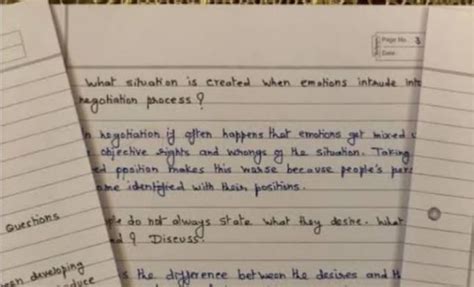 Page No. 3
Date
What situation is created when emotions intrude into
negotiation process ?
negotiation it often happens that emotions get mixed
objective rights and wrongs of the situation. Taking
position makes this worse because people's
identified with their positions.
do not always state what they desire. What
? Discuss.
the difference between the desires and
Questions
developing